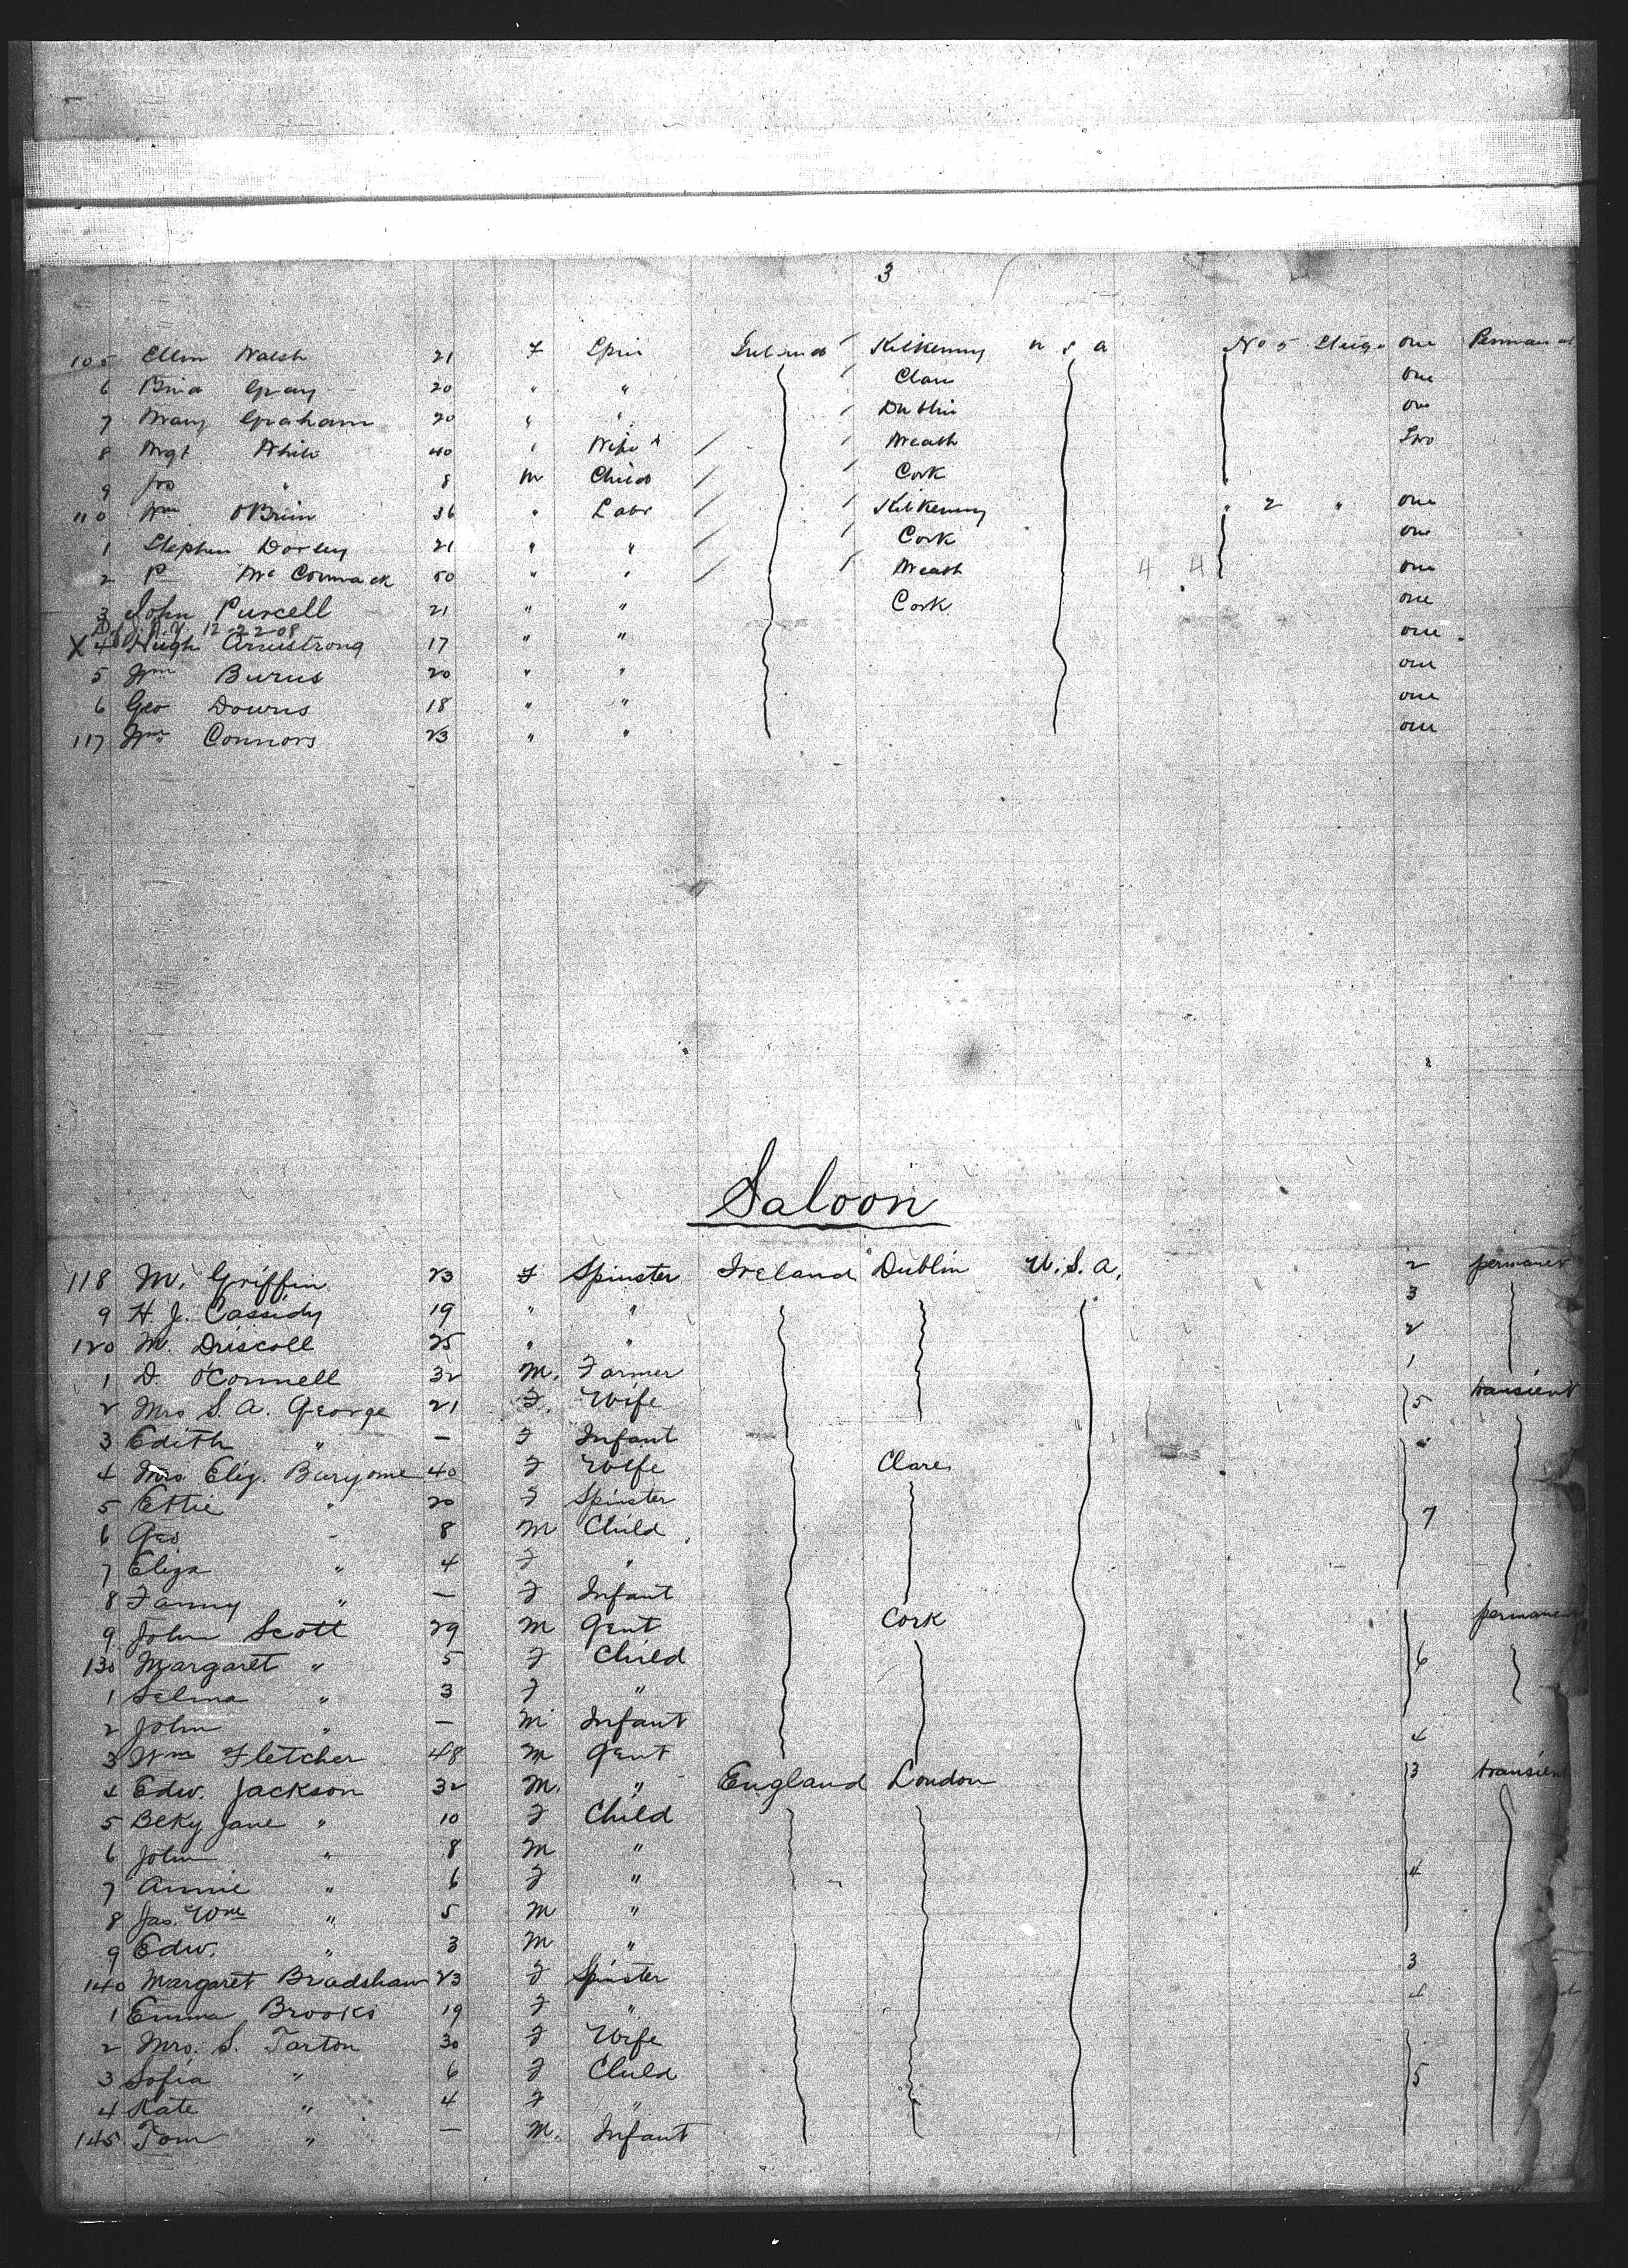 3
105 Ellen Walsh 21 F Spin Ireland / Kilkenny U S A No 5 Stege one Permanent
6 Brid Gray 20 " " / Clare one
7 Mary Graham 20 " " / Dublin one
8 Mgt White 40 " Wife / / Meath Two
9 Jno " 8 M Child / / Cork
110 Wm O'Brien 36 " Labr / / Kilkenny " 2 " one
1 Stephen 21 " " / / Cork one
2 P Mc Cormack 50 " " / / Meath 4 4 one
3 John Purcell 21 " " Cork one
12-22-08
X 4 Hugh Armstrong 17 " " one
5 Wm Burns 20 " " one
6 Geo Downs 18 " " one
117 Wm Connors 23 " " one
Saloon
118 M. Griffin 23 F Spinster Ireland Dublin U.S.A. 2 permanent
9 H. J. Cassidy 19 " " 3
120 M. Driscoll 25 " " 2
1 D. O'Connell 32 M. Farmer 1
2 Mrs S. A. George 21 F. Wife 5 transient
3 Edith " — F Infant
4 Mrs Eliz. Buryome 40 F Wife Clare
5 Ettie " 20 F Spinster
6 Geo " 8 M Child 7
7 Eliza " 4 F "
8 Fanny " — F Infant
9 John Scott 29 M Gent Cork permanent
130 Margaret " 5 F Child 6
1 Selma " 3 F "
2 John " — M Infant
3 Wm Fletcher 48 M Gent 4
4 Edw. Jackson 32 M. " England London 3 transient
5 Beky Jane " 10 F Child
6 John " 8 M "
7 Annie " 6 F " 4
8 Jas. Wm " 5 M "
9 Edw. " 3 M "
140 Margaret Bradshaw 23 F Spinster 3
1 Emma Brooks 19 F " 4
2 Mrs. S. Tarton 30 F Wife
3 Sofia " 6 F Child 5
4 Kate " 4 F "
145 Tom " — M. Infant